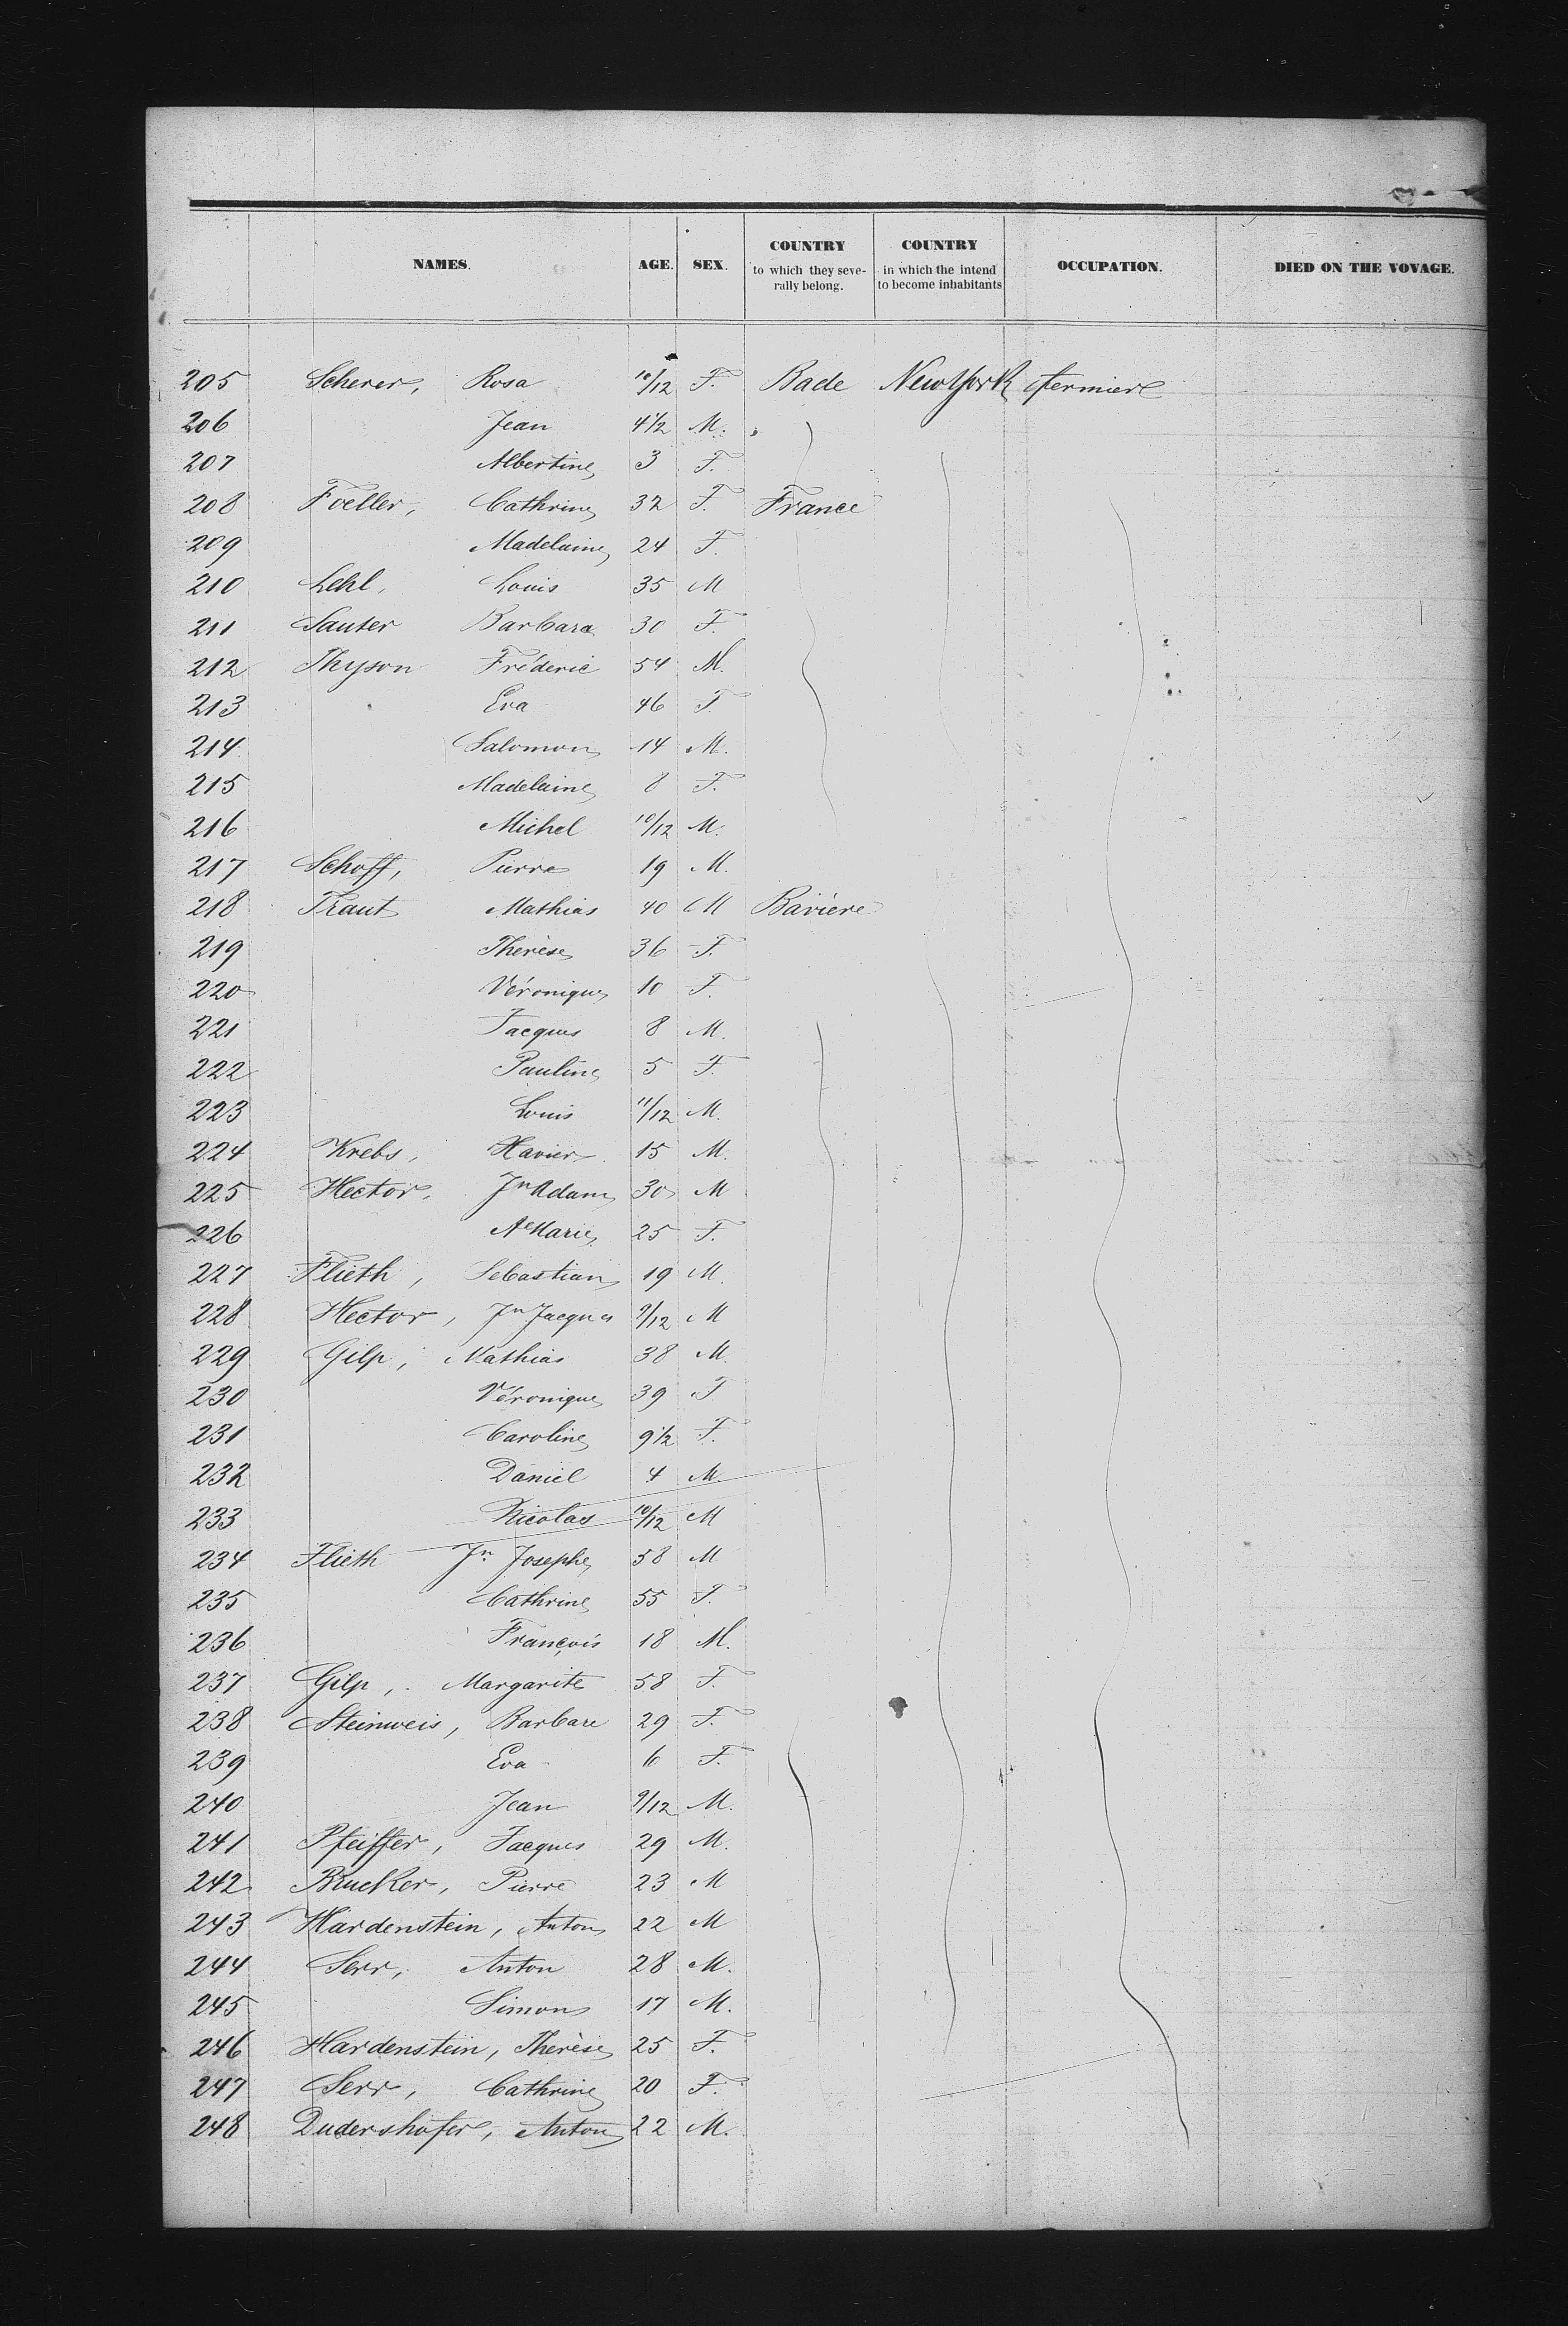 NAMES. AGE. SEX. COUNTRY to which they seve- rally belong. COUNTRY in which the intend to become inhabitants OCCUPATION. DIED ON THE VOVAGE.
205 Scherer, Rosa 10/12 F. Bade New York fermiere
206 Jean 4 1/2 M.
207 Albertine 3 F.
208 Foeller, Cathrine 32 F. France
209 Madelaine 24 F.
210 Lehl, Louis 35 M
211 Sauter Barbara 30 F.
212 Thyson Fréderic 54 M.
213 Eva 46 F
214 Salomon 14 M.
215 Madelaine 8 F.
216 Michel 10/12 M.
217 Schoff, Pierre 19 M.
218 Traut Mathias 40 M Baviere
219 Therèse 36 F.
220 Véronique 10 F.
221 Jacques 8 M.
222 Pauline 5 F.
223 Louis 11/12 M.
224 Krebs, Xavier 15 M.
225 Hector, Jn Adam 30 M
226 Ae Marie 25 F.
227 Flieth, Sebastian 19 M.
228 Hector, Jn Jacques 9/12 M
229 Gilp, Mathias 38 M.
230 Véronique 39 F
231 Caroline 9 1/2 F.
232 Daniel 4 M.
233 Nicolas 10/12 M
234 Flieth Jn Josephe 58 M
235 Cathrine 55 F.
236 François 18 M.
237 Gilp, Margarite 58 F.
238 Steinweis, Barbare 29 F.
239 Eva 6 F.
240 Jean 9/12 M.
241 Pfeiffer, Jacques 29 M.
242 Brucker, Pierre 23 M
243 Hardenstein, Anton 22 M
244 Serr, Anton 28 M.
245 Simon 17 M.
246 Hardenstein, Therèse 25 F.
247 Serr, Cathrine 20 F.
248 Dudershofer, Anton 22 M.